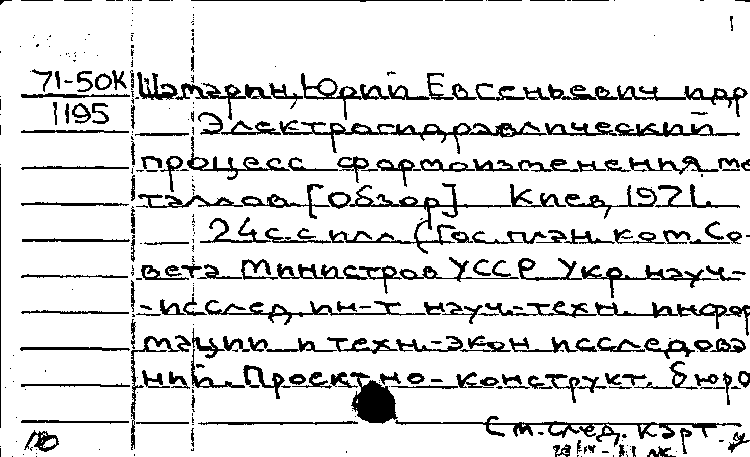 1
71-50К Шатарин, Юрий Евгеньевич и др
1195 Электрогидравлический
процесс формоизменения ме
таллов. [Обзор]. Киев, 1971.
24 с. с илл. (Гос. план. ком. Со-
вета Министров УССР. Укр. науч.-
-исслед. ин-т науч.-техн. инфор
мации и техн.-экон исследова
ний. Проектно-конструкт. бюро
См. след. карт.